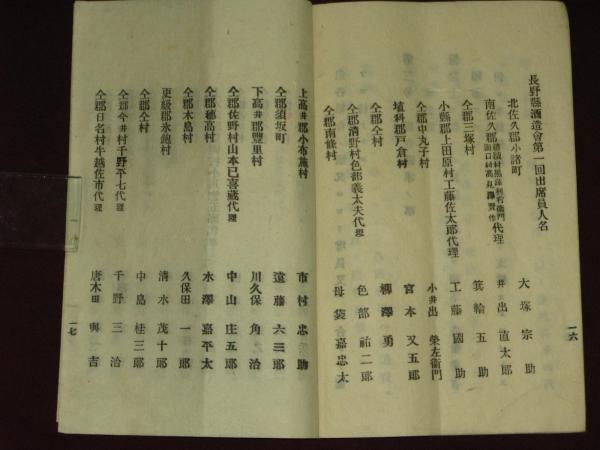 長野縣酒造會第一回出席員人名
北佐久郡小諸町 大塚宗助
南佐久郡 代理 井出直太郎
仝郡三塚村 箕輪五助
小縣郡上田原村工藤佐太郎代理 工藤國助
仝郡中丸子村 小井出榮左衞門
埴科郡戸倉村 宮本又五郎
仝郡仝村 柳澤勇
仝郡清野村色部義太夫代理 色部祐二郎
仝郡南條村 母袋嘉忠太
一六
上高井郡小布施村 市村忠助
仝郡須坂町 遠藤六三郎
下高井郡豐里村 川久保角之治
仝郡佐野村山本已喜藏代理 中山庄五郎
仝郡穗高村 水澤嘉平太
仝郡木島村 久保田一郎
更級郡氷鉋村 清水茂十郎
仝郡仝村 中島桂三郎
仝郡今井村千野平七代理 千野三治
仝郡日名村牛越佐市代理 唐木田與吉
一七